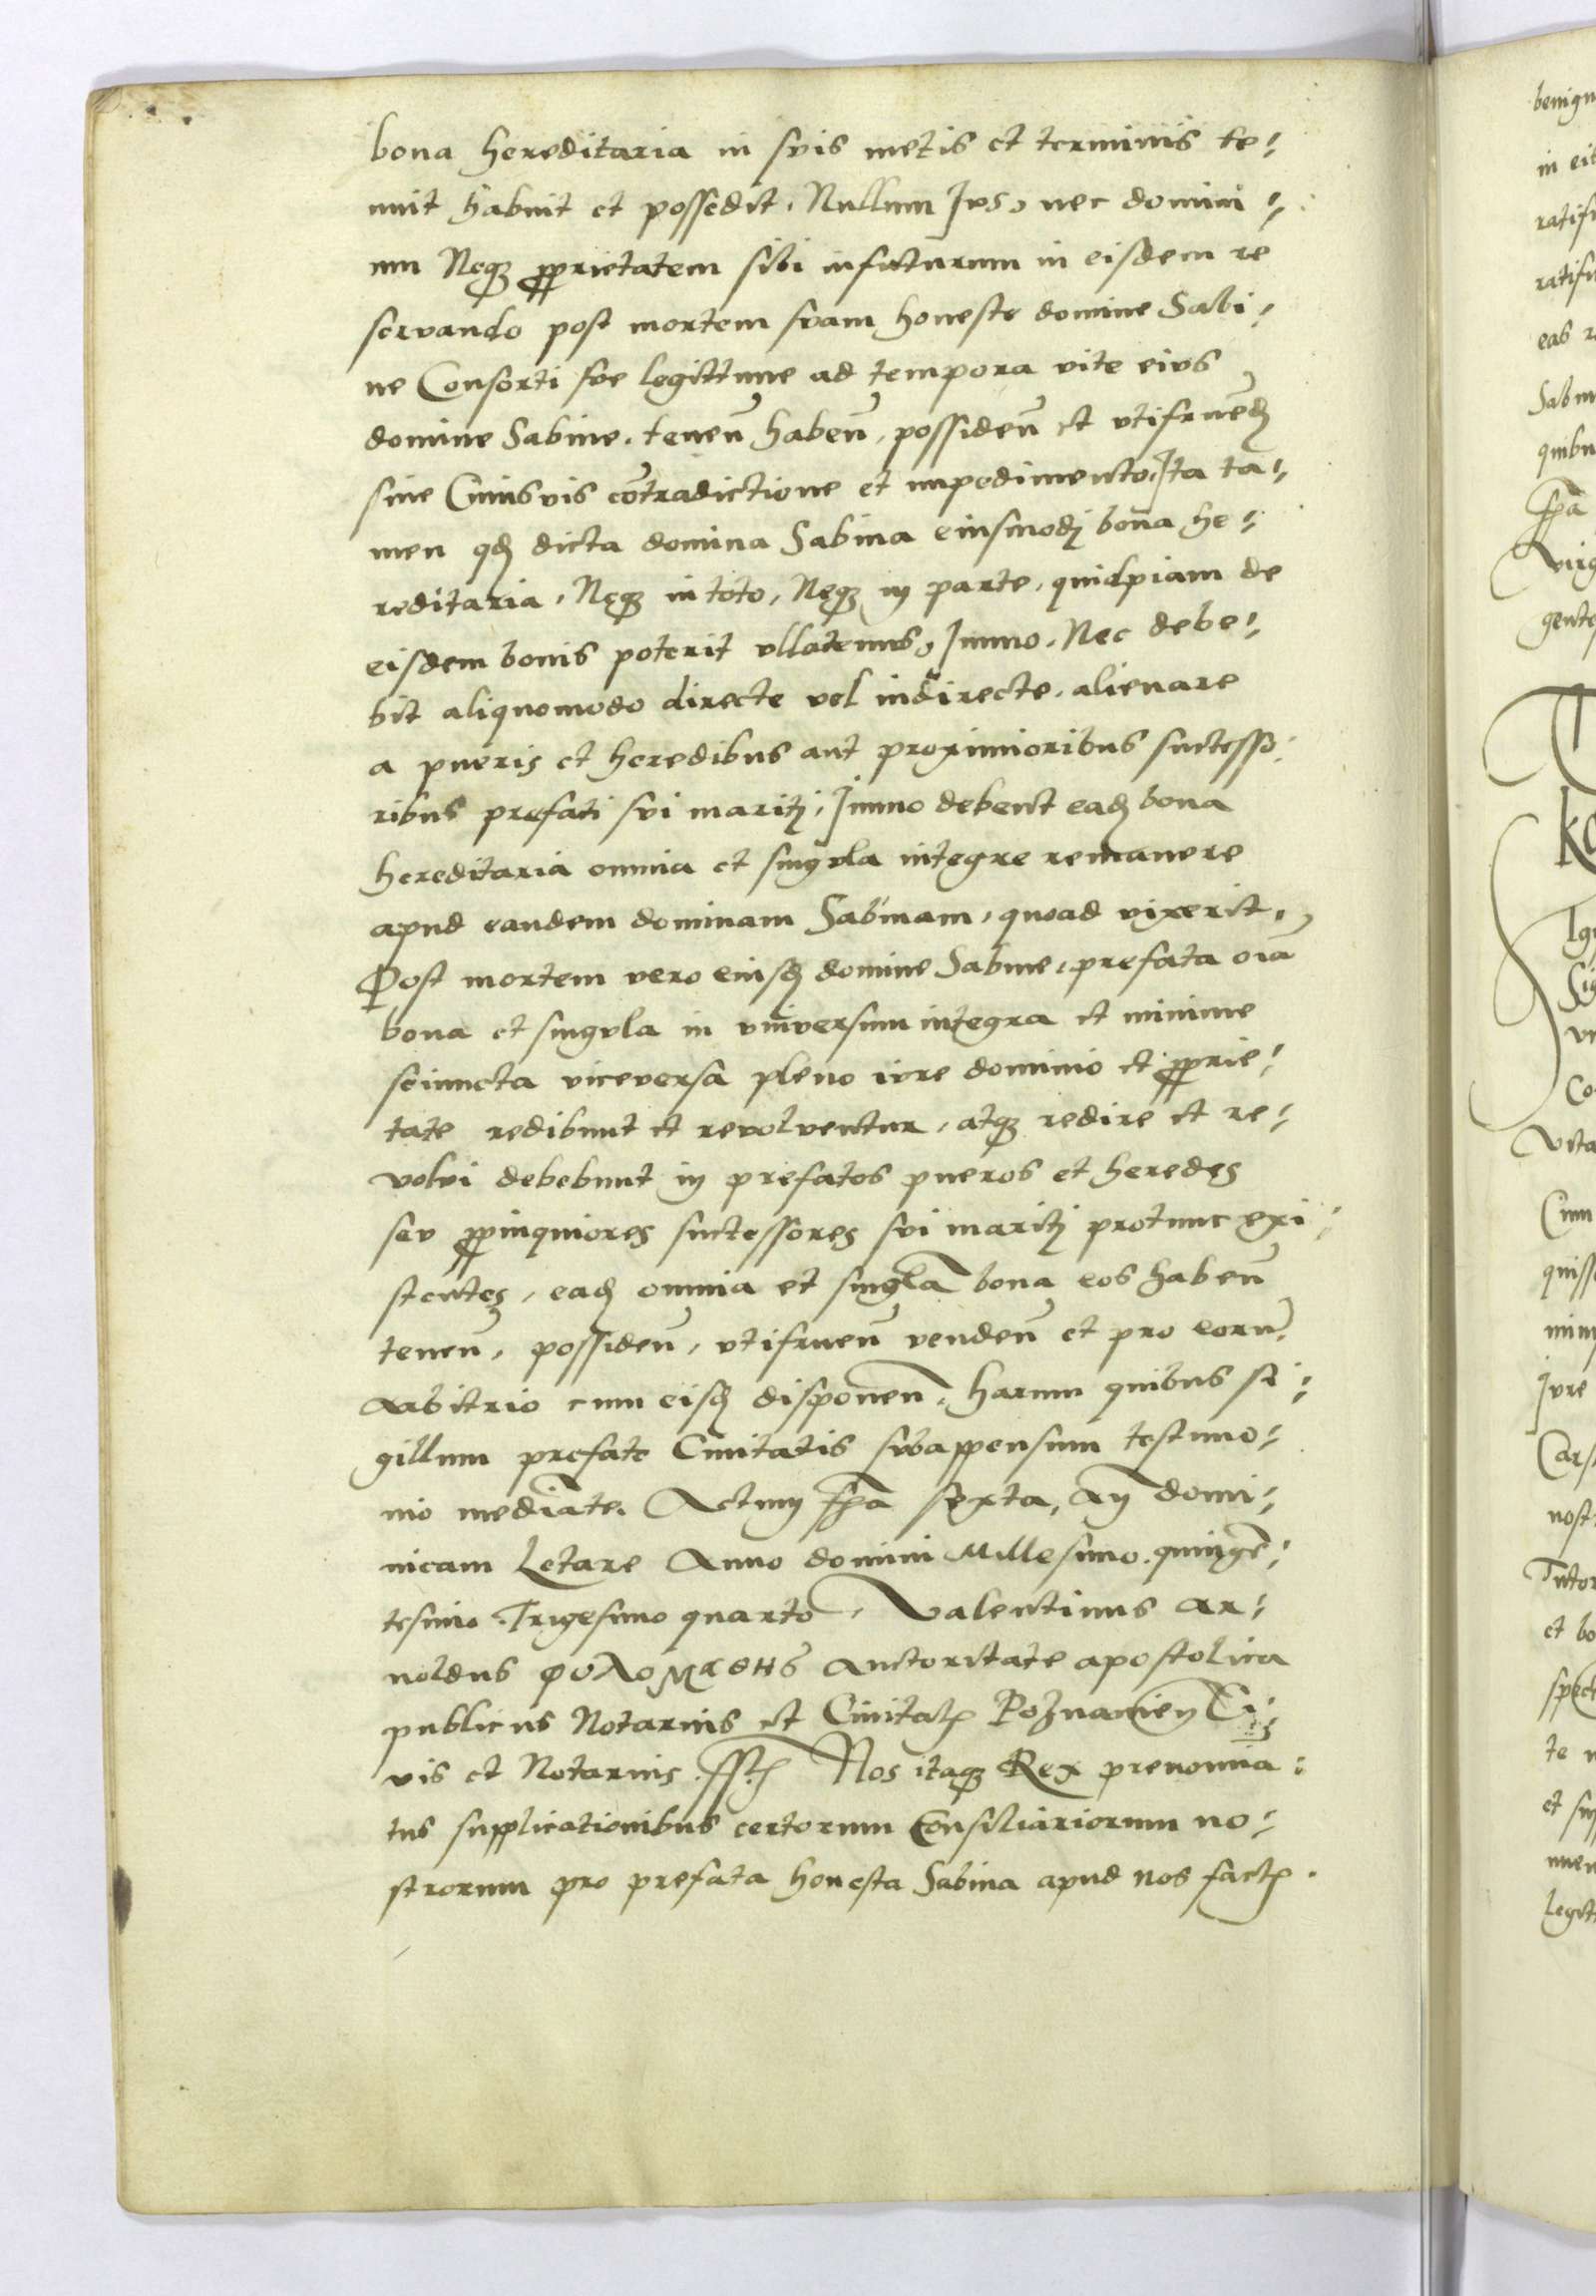 bona hereditaria in suis metis et terminis te=
nuit habuit et possedit. Nullum Jus, nec domini=
um Neq3 ꝓprietatem sibi infuturum in eisdem re
servando post mortem suam honeste domine Sabi=
ne Consorti sue legittime ad tempora vite eius
domine Sabine. teneñ habeñ, possideñ et vtifrueñd
sine Cuiusvis cõtradictione et impedimento. Ita ta=
men qd dicta domina Sabina eiusmodj bona he=
reditaria, Neq3 in toto, Neq3 in parte, quidpiam de
eisdem bonis poterit vllatenus, Immo. Nec debe=
bit aliquomodo directe vel indirecte, alienare
a pueris et heredibus aut proximioribus successo=
ribus prefati sui maritj, Immo debent ead bona
hereditaria omnia et singula integre remanere
apud eandem dominam Sabinam, quoad vixerit.
Post mortem vero eiusd domine Sabine, prefata oĩa
bona et singula in vniversum integra et minime
seiuncta viceversa pleno iure dominio et ꝓprie=
tate redibunt et revolventur, atq3 redire et re=
volvi debebunt in prefatos pueros et heredes
seu ꝓpinquiores successores sui maritj protunc exi=
stentes, ead omnia et singla bona eos habeñ
teneñ, possideñ, vtifrueñ vendeñ et pro eorũ
arbitrio cum eisd disponeñ. Harum quibus si=
gillum prefate Ciuitatis subappensum testimo=
nio mediãte. Actum fẽa sexta, añ domi=
nicam Letare Anno domini Millesimo. quingẽ=
tesimo Trigesimo quarto, Valentinus Ar=
noldus φολομαθης auctoritate apostolica
publicus Notarius et Ciuitatꝭ Poznanieñ Ci=
vis et Notarius sst Nos itaq3 Rex prenomina=
tus supplicationibus certorum Consiliariorum no=
strorum pro prefata honesta Sabina apud nos factꝭ.